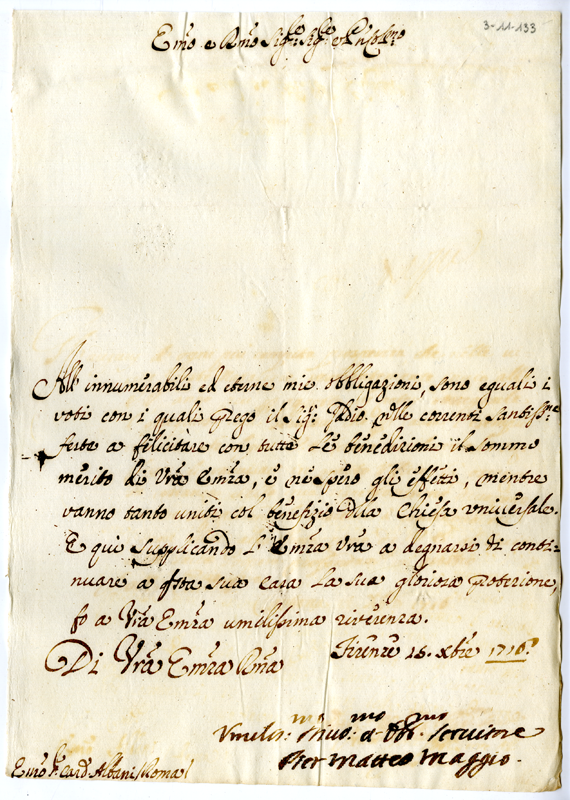 3-11-133
Emo e Rmo Sigre Sigre e Pne Colmo
All' innumerabili ed eterne mie obbligazioni, sono eguali i
voti con i quali prego il Sigre Iddio nelle correnti Santissme
feste a felicitare con tutte le benedizioni il sommo
merito di Vra Emza, e ne spero gli effetti, mentre
vanno tanto uniti col benefizio della Chiesa universale.
E qui supplicando l'Emza Vra a degnarsi di conti=
nuare a questa sua Casa la sua gloriosa protezione,
fo a Vra Emza umilissima riverenza.
Di Vra Emza Rma
Firenze 15. xbre 1716.
Umilismo Divomo et Obbmo Servitore
Pier Matteo Maggio.
Emo Sr Card. Albani Roma